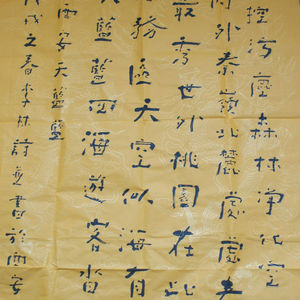 控污塵森林淨化空
外秦嶺北麓處處
最秀世外桃園在此
務天空似海有
藍藍四海遊客皆
西安天藍藍
戌之春李林詩並書於西安